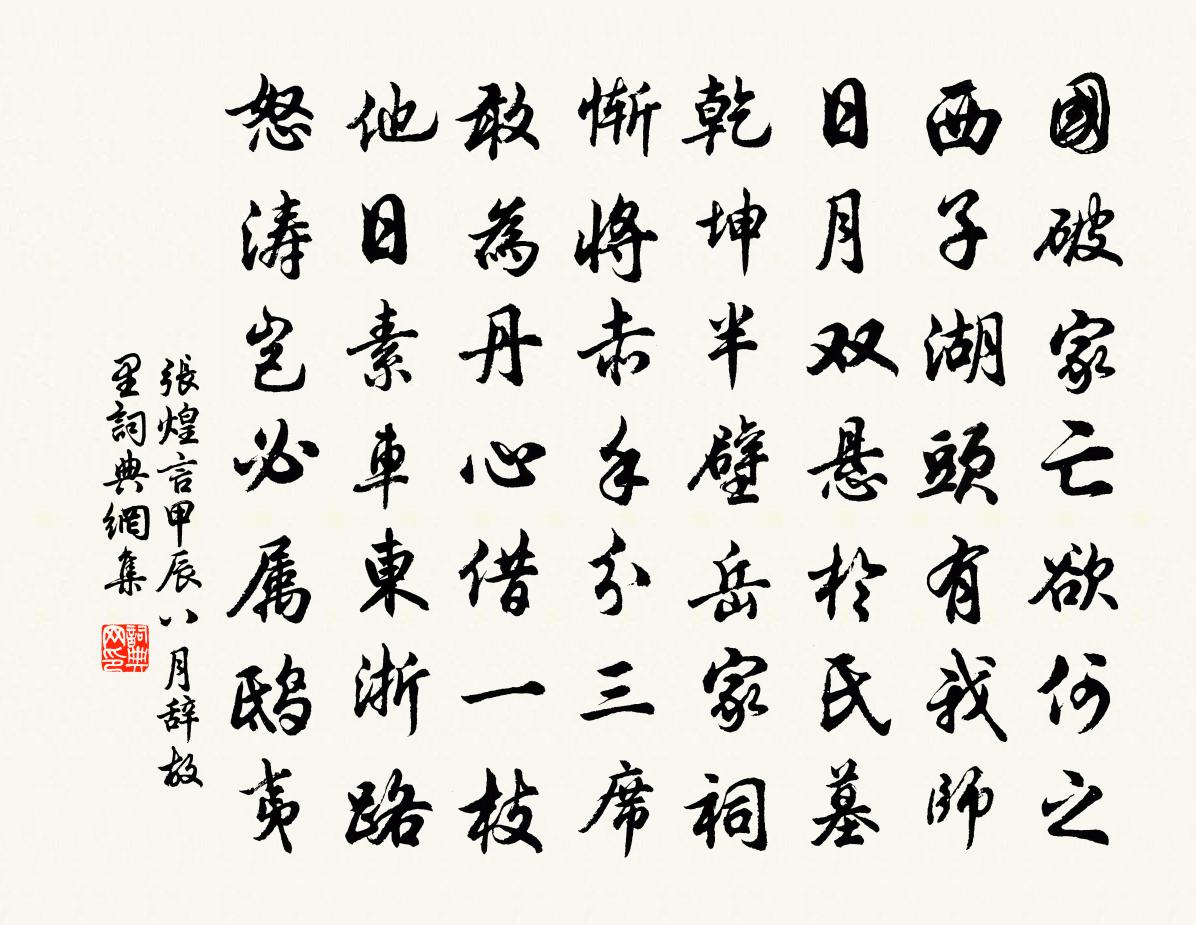 國破家亡欲何之
西子湖頭有我師
日月双悬於氏墓
乾坤半壁岳家祠
惭将赤手分三席
敢為丹心借一枝
他日素車東浙路
怒涛岂必属鸱夷
張煌言甲辰八月辞故
里詞典網集
詞典
网印